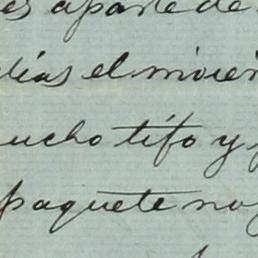 es aparte de
días el
ucho tifo y
paquete no